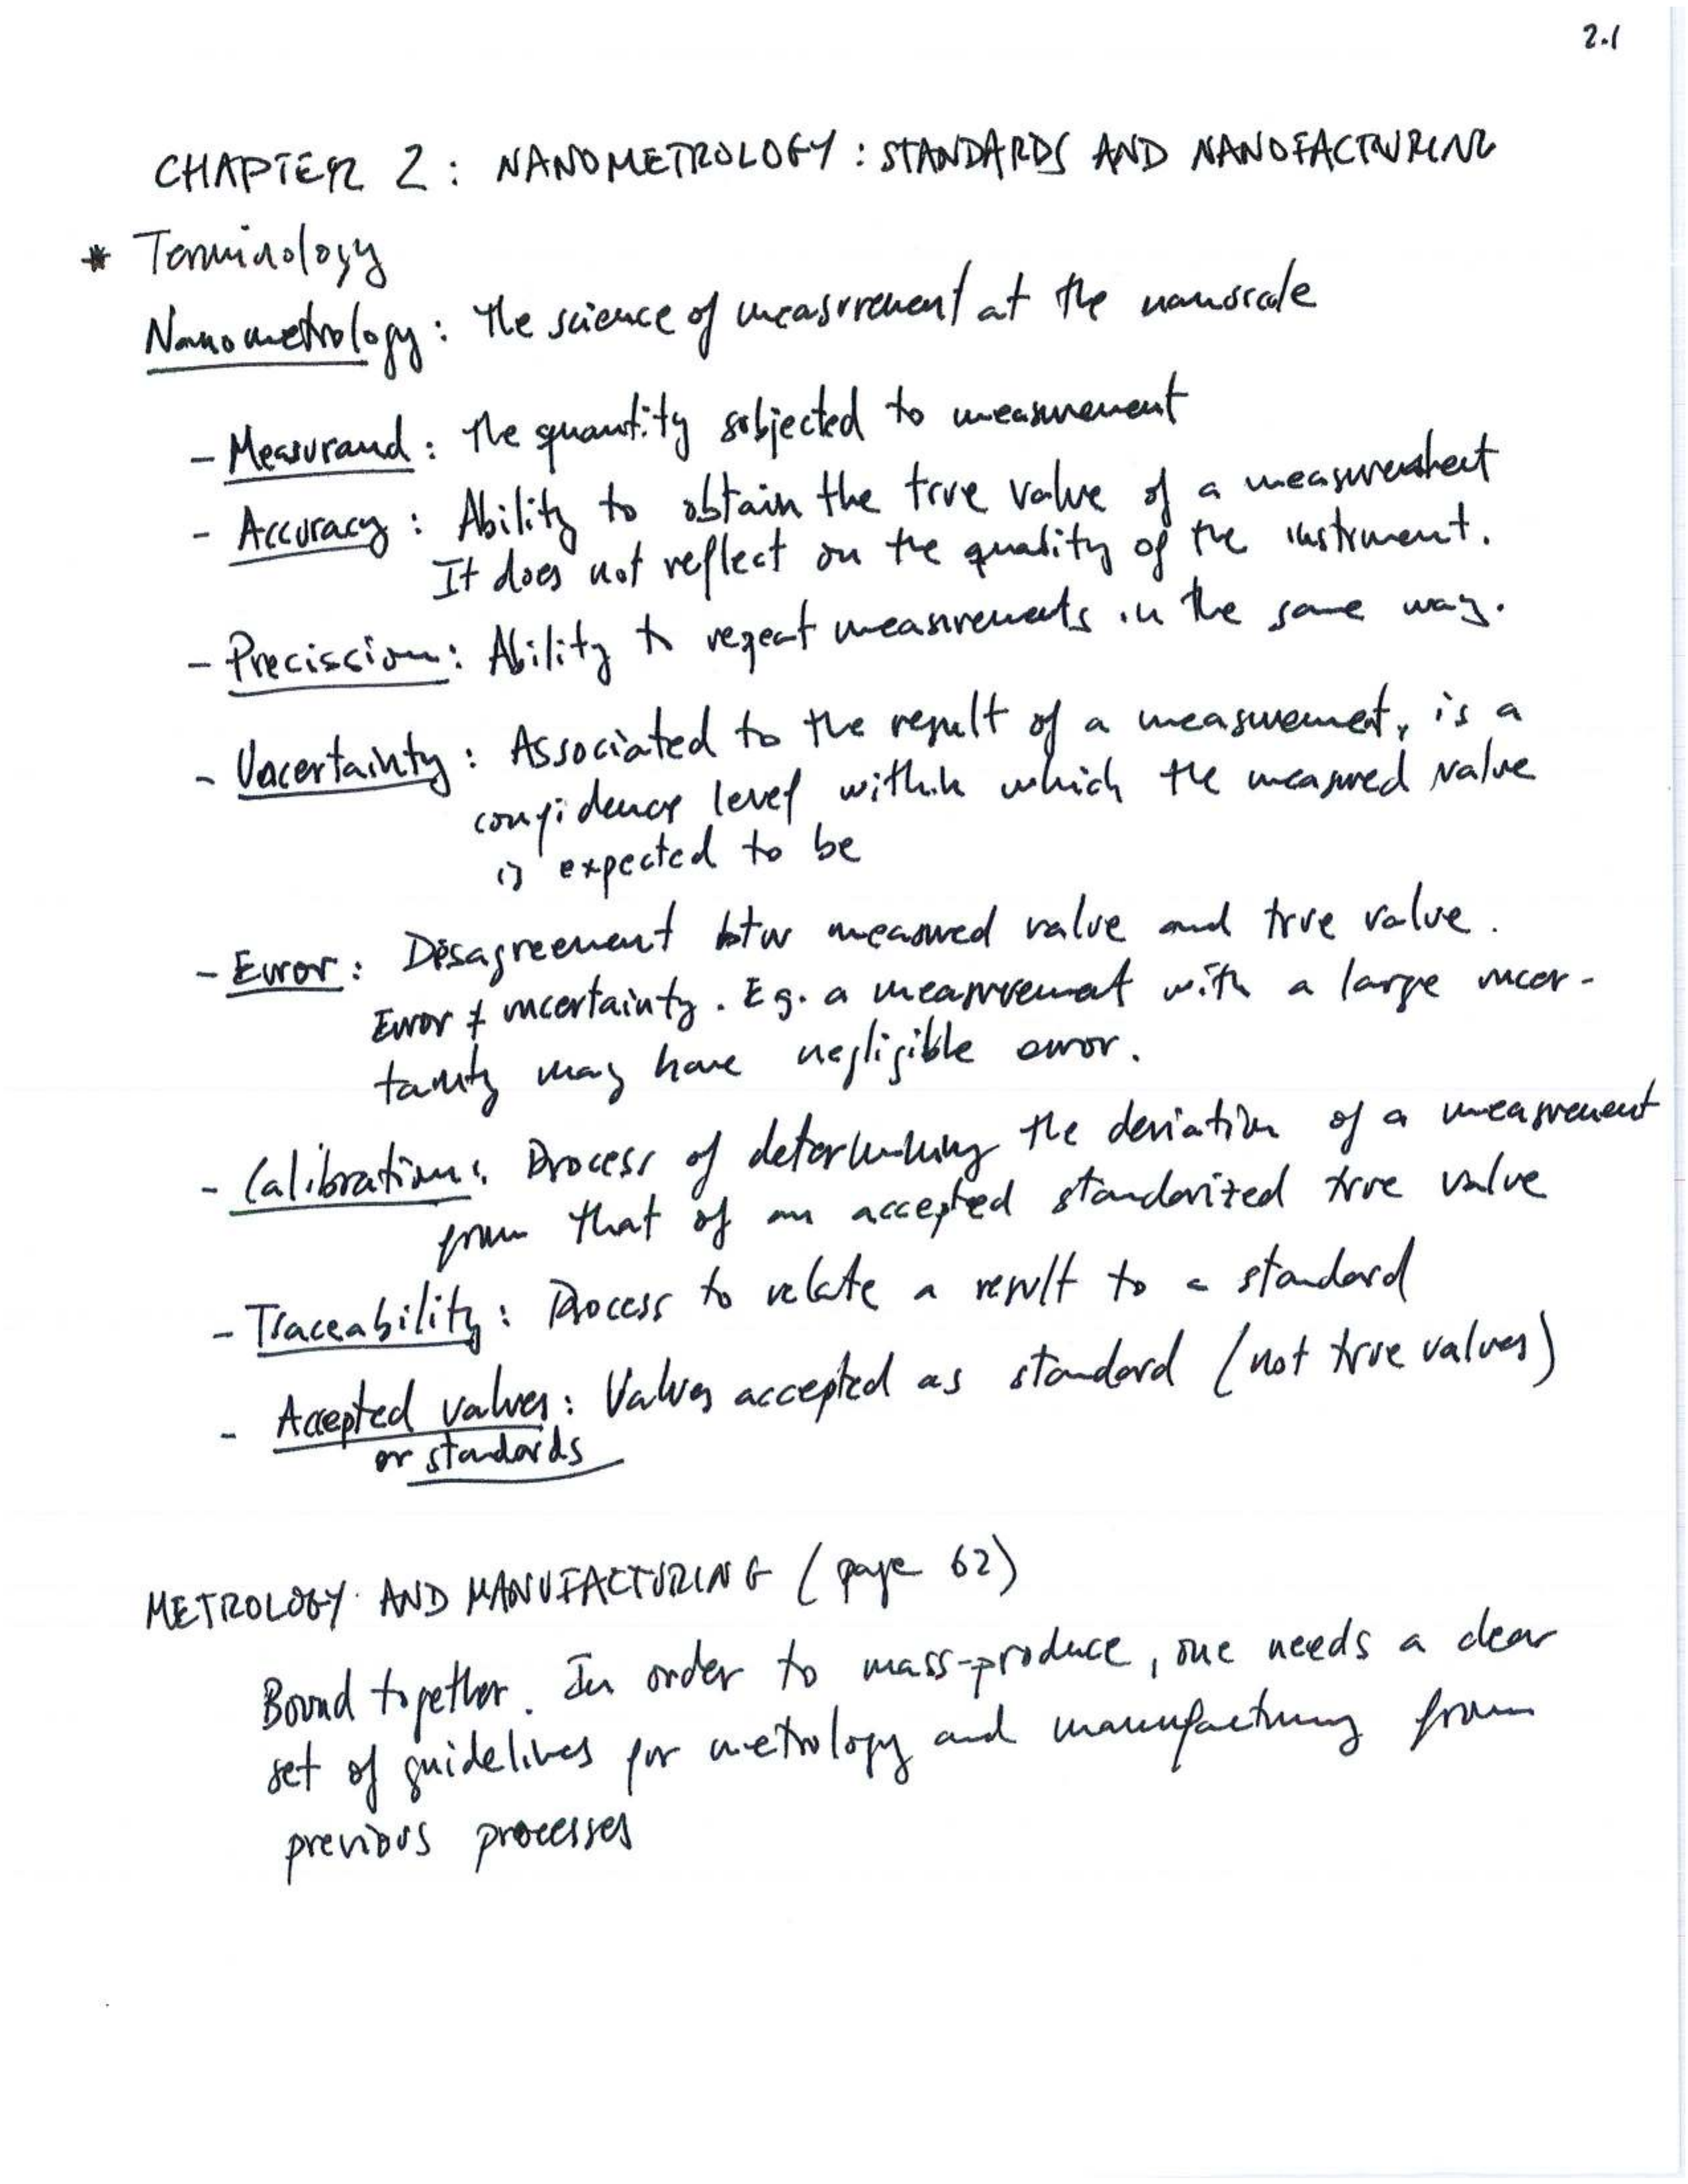 2.1
CHAPTER 2: NANOMETROLOGY: STANDARDS AND NANOFACTURING
* Terminology
Nanometrology: The science of measurement at the nanoscale
- Measurand: The quantity subjected to measurement
- Accuracy: Ability to obtain the true value of a measurement
It does not reflect on the quality of the instrument.
- Precission: Ability to repeat measurements in the same way.
- Uncertainty: Associated to the result of a measurement, is a
confidence level within which the measured value
is expected to be
- Error: Disagreement btw measured value and true value.
Error ≠ uncertainty. Eg. a measurement with a large uncer-
tainty may have negligible error.
- Calibration: Process of determining the deviation of a measurement
from that of an accepted standarized true value
- Traceability: Process to relate a result to a standard
- Accepted values: Values accepted as standard (not true values)
or standards
METROLOGY AND MANUFACTURING (page 62)
Bound together. In order to mass-produce, one needs a clear
set of guidelines for metrology and manufacturing from
previous processes